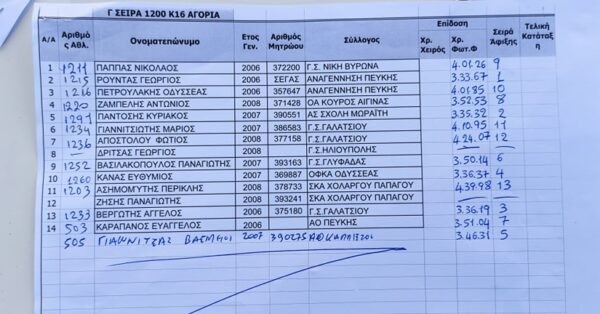 Γ ΣΕΙΡΑ 1200 Κ16 ΑΓΟΡΙΑ
Α/Α Αριθμός Αθλ. Ονοματεπώνυμο Ετος Γεν. Αριθμός Μητρώου Σύλλογος Επίδοση Χρ. Χειρός Χρ. Φωτ.Φ Σειρά Άφιξης Τελική Κατάταξη
1 1211 ΠΑΠΠΑΣ ΝΙΚΟΛΑΟΣ 2006 372200 Γ.Σ. ΝΙΚΗ ΒΥΡΩΝΑ 4.01.26 9
2 1215 ΡΟΥΝΤΑΣ ΓΕΩΡΓΙΟΣ 2006 ΣΕΓΑΣ ΑΝΑΓΕΝΝΗΣΗ ΠΕΥΚΗΣ 3.33.67 1
3 1216 ΠΕΤΡΟΥΛΑΚΗΣ ΟΔΥΣΣΕΑΣ 2006 357647 ΑΝΑΓΕΝΝΗΣΗ ΠΕΥΚΗΣ 4.01.85 10
4 1220 ΖΑΜΠΕΛΗΣ ΑΝΤΩΝΙΟΣ 2008 371428 ΟΑ ΚΟΥΡΟΣ ΑΙΓΙΝΑΣ 3.52.53 8
5 1291 ΠΑΝΤΟΣΗΣ ΚΥΡΙΑΚΟΣ 2007 390551 ΑΣ ΣΧΟΛΗ ΜΩΡΑΪΤΗ 3.35.32 2
6 1234 ΓΙΑΝΝΙΤΣΙΩΤΗΣ ΜΑΡΙΟΣ 2007 386583 Γ.Σ.ΓΑΛΑΤΣΙΟΥ 4.10.95 11
7 1236 ΑΠΟΣΤΟΛΟΥ ΦΩΤΙΟΣ 2008 377158 Γ.Σ.ΓΑΛΑΤΣΙΟΥ 4.24.07 12
8 — ΔΡΙΤΣΑΣ ΓΕΩΡΓΙΟΣ 2008 Γ.Σ.ΗΛΙΟΥΠΟΛΗΣ —
9 1252 ΒΑΣΙΛΑΚΟΠΟΥΛΟΣ ΠΑΝΑΓΙΩΤΗΣ 2007 393163 Γ.Σ.ΓΛΥΦΑΔΑΣ 3.50.14 6
10 1260 ΚΑΝΑΣ ΕΥΘΥΜΙΟΣ 2007 369887 ΟΦΚΑ ΟΔΥΣΣΕΑΣ 3.36.37 4
11 1203 ΑΣΗΜΟΜΥΤΗΣ ΠΕΡΙΚΛΗΣ 2008 378733 ΣΚΑ ΧΟΛΑΡΓΟΥ ΠΑΠΑΓΟΥ 4.39.98 13
12 ΖΗΣΗΣ ΠΑΝΑΓΙΩΤΗΣ 2008 393241 ΣΚΑ ΧΟΛΑΡΓΟΥ ΠΑΠΑΓΟΥ —
13 1233 ΒΕΡΓΩΤΗΣ ΑΓΓΕΛΟΣ 2006 375180 Γ.Σ.ΓΑΛΑΤΣΙΟΥ 3.36.19 3
14 503 ΚΑΡΑΠΑΝΟΣ ΕΥΑΓΓΕΛΟΣ 2008 ΑΟ ΠΕΥΚΗΣ 3.51.04 7
505 ΓΙΑΝΝΙΤΣΑΣ 2007 390275 3.46.31 5